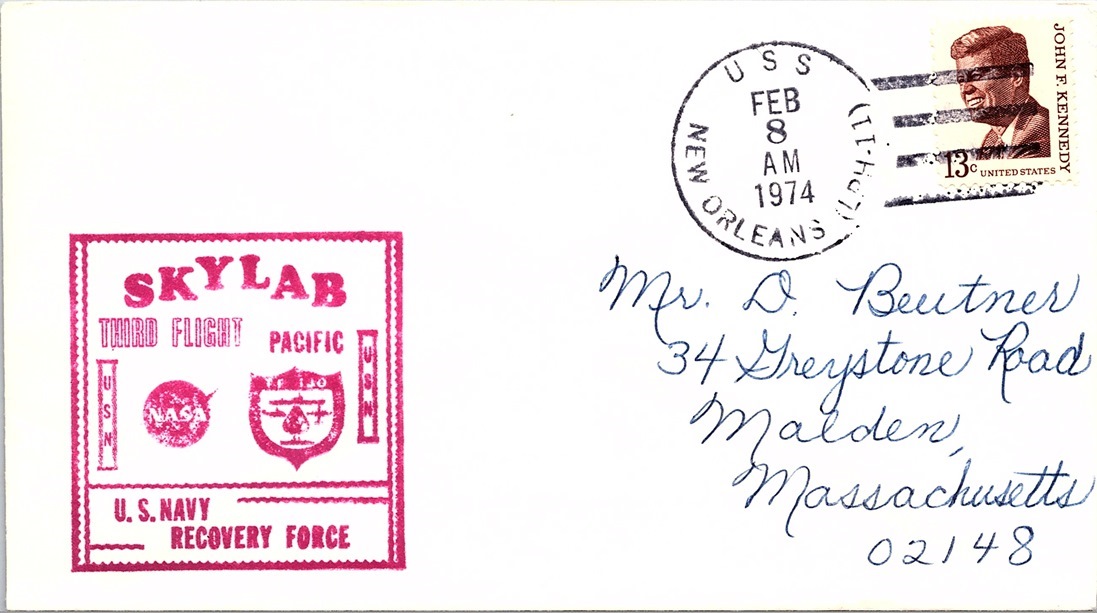 USS
NEW ORLEANS (LPH-11)
FEB
8
AM
1974
JOHN F. KENNEDY
13c UNITED STATES
Mr. D. Beutner
34 Greystone Road
Malden,
Massachusetts
02148
SKYLAB
THIRD FLIGHT
PACIFIC
USN
NASA
USN
U.S. NAVY
RECOVERY FORCE